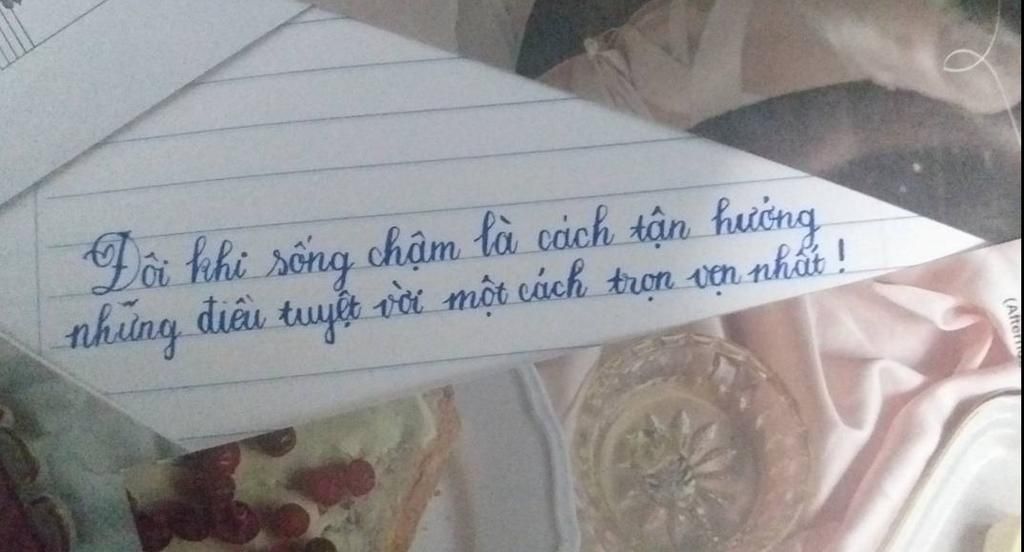 Đôi khi sống chậm là cách tận hưởng
những điều tuyệt vời một cách trọn vẹn nhất!